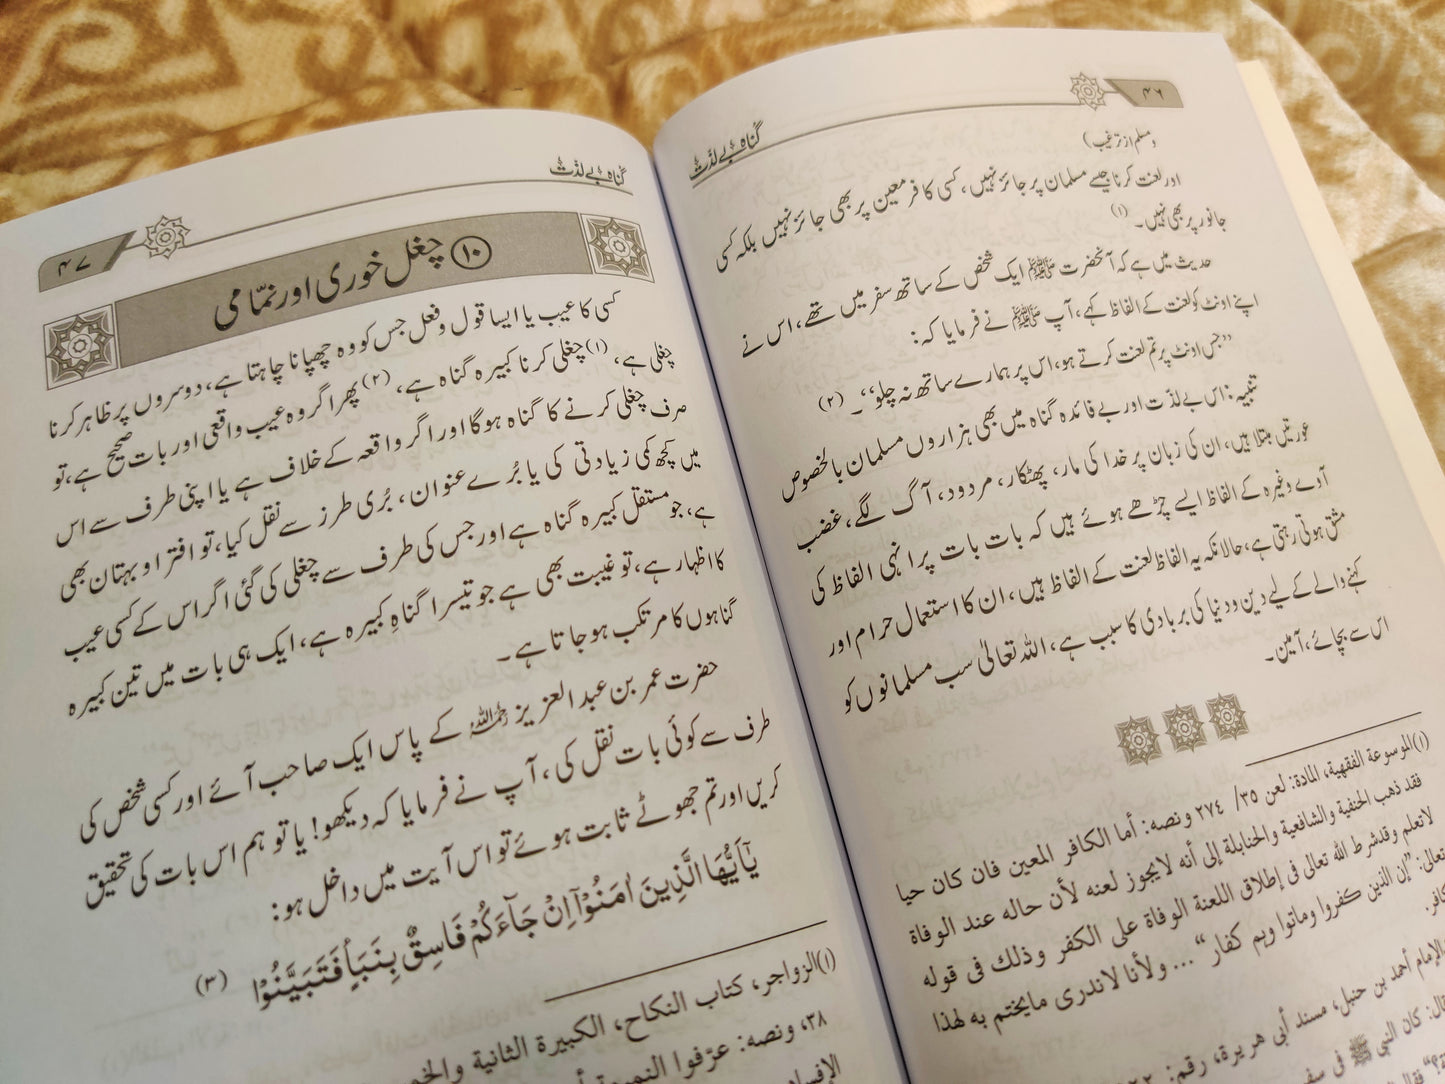 ۴۶
گناہ بے لذّت
و مسلم از ترغیب)
اور لعنت کرنا جیسے مسلمان پر جائز نہیں، کسی کافر معین پر بھی جائز نہیں بلکہ کسی
جانور پر بھی نہیں۔ (۱)
حدیث میں ہے کہ آنحضرت ﷺ ایک شخص کے ساتھ سفر میں تھے، اس نے
اپنے اونٹ کو لعنت کے الفاظ کہے، آپ ﷺ نے فرمایا کہ:
”جس اونٹ پر تم لعنت کرتے ہو، اس پر ہمارے ساتھ نہ چلو“۔ (۲)
تنبیہ: اس بے لذّت اور بے فائدہ گناہ میں بھی ہزاروں مسلمان بالخصوص
عورتیں مبتلا ہیں، ان کی زبان پر خدا کی مار، پھٹکار، مردود، آگ لگے، غضب
آوے وغیرہ کے الفاظ ایسے چڑھے ہوئے ہیں کہ بات بات پر انہی الفاظ کی
مشق ہوتی رہتی ہے، حالانکہ یہ الفاظ لعنت کے الفاظ ہیں، ان کا استعمال حرام اور
کہنے والے کے لیے دین ودنیا کی بربادی کا سبب ہے، اللہ تعالیٰ سب مسلمانوں کو
اس سے بچائے، آمین۔
(۱) الموسوعة الفقهية، المادة: لعن ۳۵/ ۲۷۴ ونصه: أما الكافر المعين فان كان حيا
فقد ذهب الحنفية والشافعية والحنابلة إلى أنه لايجوز لعنه لأن حاله عند الوفاة
لاتعلم وقدشرط الله تعالى فى إطلاق اللعنة الوفاة على الكفر وذلك فى قوله
تعالى: ”إن الذين كفروا وماتوا وہم كفار“... ولأنا لاندرى مايختم به لهذا
الكافر.
الإمام أحمد بن حنبل، مسند أبى هريرة، رقم:
قال: كان النبي ﷺ فى سفر
۴۷
گناہ بے لذّت
(۱۰) چغل خوری اور نمّامی
کسی کا عیب یا ایسا قول وفعل جس کو وہ چھپانا چاہتا ہے، دوسروں پر ظاہر کرنا
چغلی ہے، (۱) چغلی کرنا کبیرہ گناہ ہے، (۲) پھر اگر وہ عیب واقعی اور بات صحیح ہے، تو
صرف چغلی کرنے کا گناہ ہوگا اور اگر واقعہ کے خلاف ہے یا اپنی طرف سے اس
میں کچھ کمی زیادتی کی یا بُرے عنوان، بُری طرز سے نقل کیا، تو افترا و بہتان بھی
ہے، جو مستقل کبیرہ گناہ ہے اور جس کی طرف سے چغلی کی گئی اگر اس کے کسی عیب
کا اظہار ہے، تو غیبت بھی ہے جو تیسرا گناہِ کبیرہ ہے، ایک ہی بات میں تین کبیرہ
گناہوں کا مرتکب ہو جاتا ہے۔
حضرت عمر بن عبد العزیز رحمہ اللہ کے پاس ایک صاحب آئے اور کسی شخص کی
طرف سے کوئی بات نقل کی، آپ نے فرمایا کہ دیکھو! یا تو ہم اس بات کی تحقیق
کریں اور تم جھوٹے ثابت ہوئے تو اس آیت میں داخل ہو:
يٰۤاَيُّهَا الَّذِيْنَ اٰمَنُوْۤا اِنْ جَآءَكُمْ فَاسِقٌۢ بِنَبَاٍ فَتَبَيَّنُوْۤا (۳)
(۱) الزواجر، كتاب النكاح، الكبيرة الثانية
۳۸، ونصه: عرّفوا النميمة